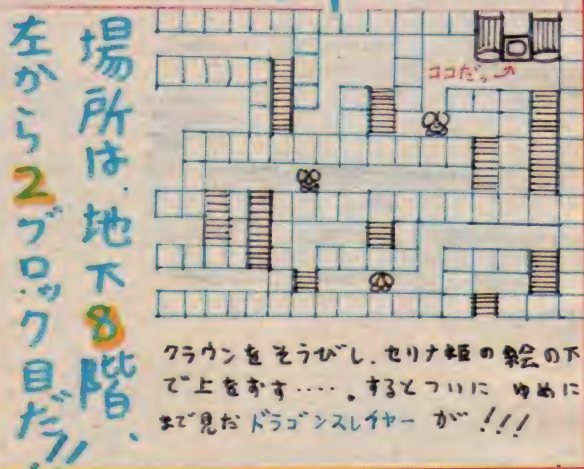 場所は、地下8階、
左から2ブロック目だッ!!
ココだっ→
クラウンをそうびし、セリナ姫の絵の下
で上をおす‥‥。するとついに ゆめに
まで見たドラゴンスレイヤーが!!!